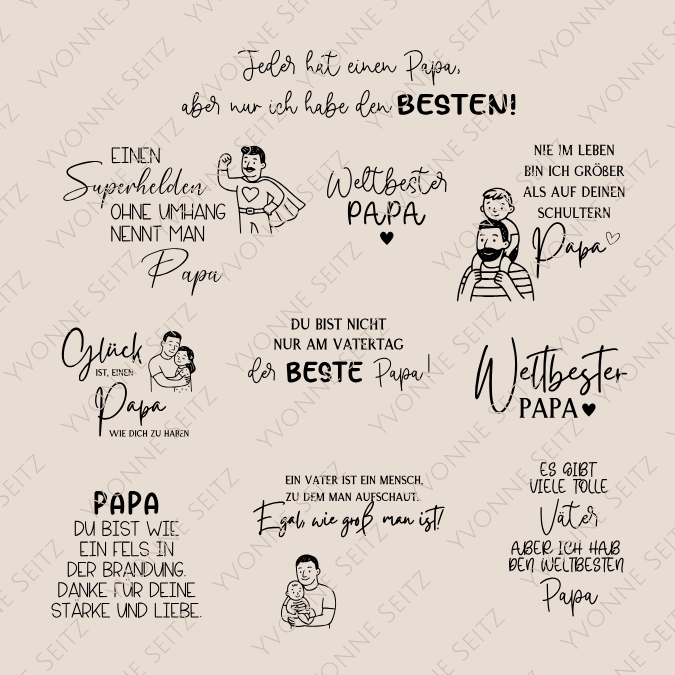 Jeder hat einen Papa,
aber nur ich habe den BESTEN!
EINEN
Superhelden
OHNE UMHANG
NENNT MAN
Papa
Weltbester
PAPA
NIE IM LEBEN
BIN ICH GRÖßER
ALS AUF DEINEN
SCHULTERN
Papa
Glück
IST, EINEN
Papa
WIE DICH ZU HABEN
DU BIST NICHT
NUR AM VATERTAG
der BESTE Papa!
Weltbester
PAPA
PAPA
DU BIST WIE
EIN FELS IN
DER BRANDUNG.
DANKE FÜR DEINE
STÄRKE UND LIEBE.
EIN VATER IST EIN MENSCH,
ZU DEM MAN AUFSCHAUT.
Egal, wie groß man ist!
ES GIBT
VIELE TOLLE
Väter
ABER ICH HAB
DEN WELTBESTEN
Papa
YVONNE SEITZ